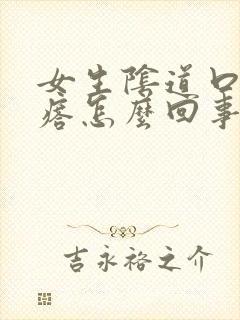 女生陰道口
痞怎麼回事
吉永裕之介